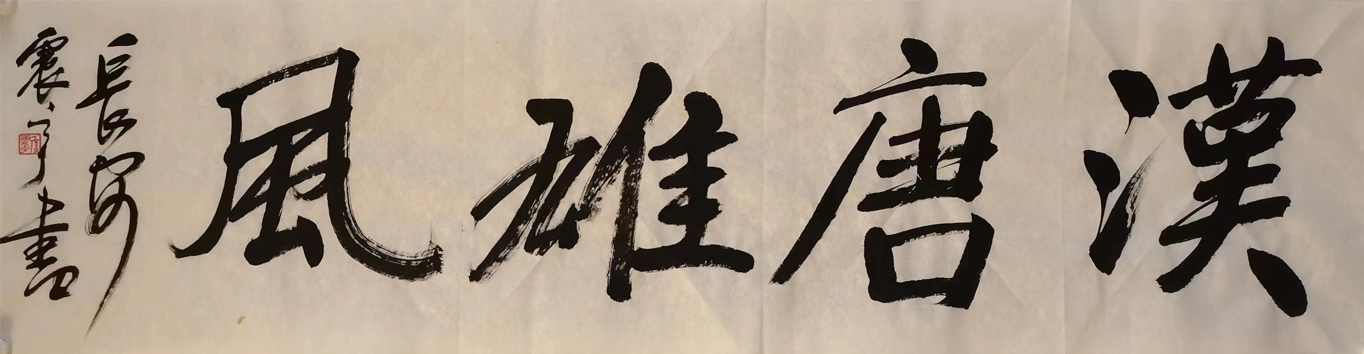 漢唐雄風
長安
震宇書